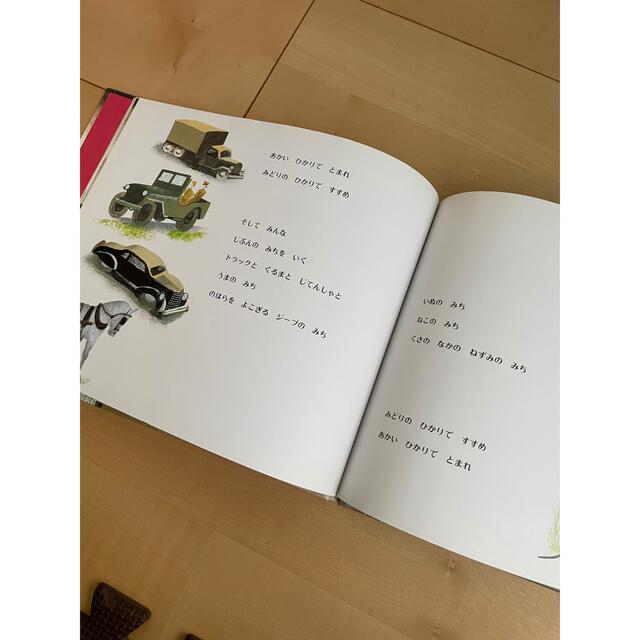 あかい ひかりで とまれ
みどりの ひかりで すすめ
そして みんな
じぶんの みちを いく
トラックと くるまと じてんしゃと
うまの みち
のはらを よこぎる ジープの みち
いぬの みち
ねこの みち
くさの なかの ねずみの みち
みどりの ひかりで すすめ
あかい ひかりで とまれ